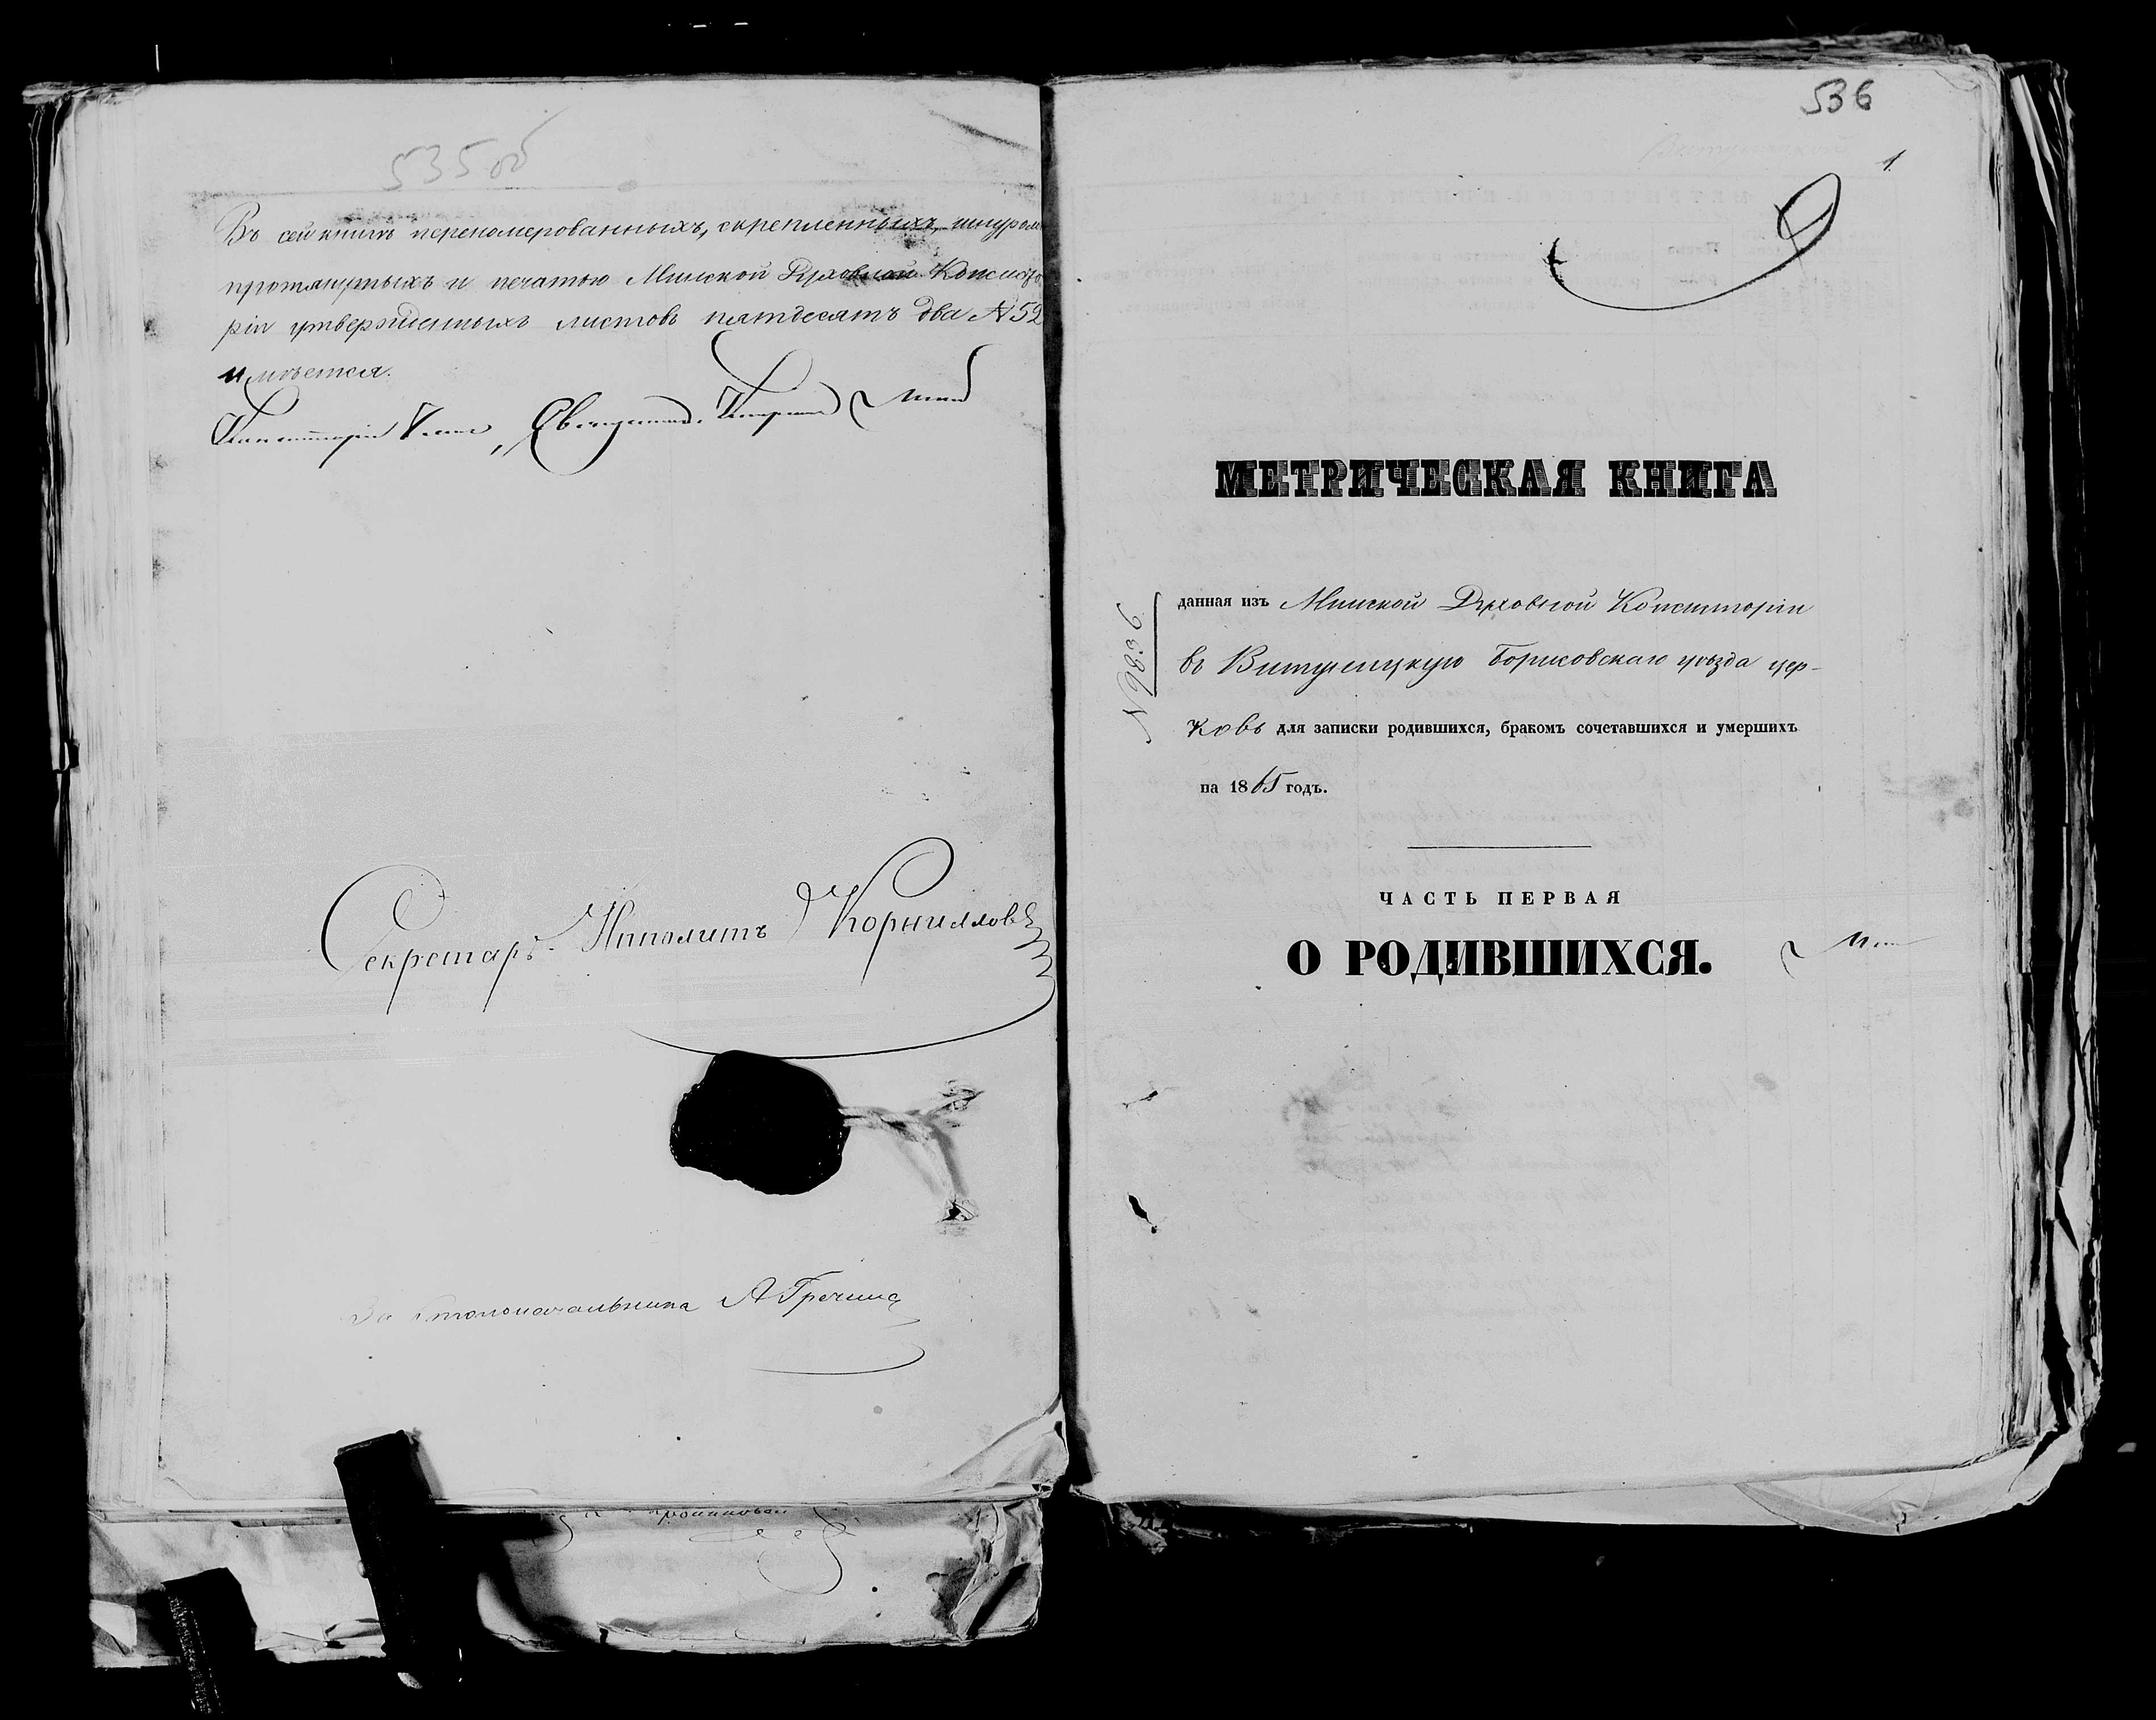 535 об
Въ сей книгѣ переномерованныхъ, скрепленныхъ, шнуром
протянутыхъ и печатью Минской Духовной Консисто
ріи утвержденныхъ листовъ пятдесятъ два № 52
имѣется.
Консисторіи Членъ, Священникъ
Секретарь Ипполитъ Корниллов
За Столоначальника А Гречина
536
1.
МЕТРИЧЕСКАЯ КНИГА
№ 9836
данная изъ Минской Духовной Консисторіи
въ Витуницкую Борисовскаго уѣзда цер-
ковь для записки родившихся, бракомъ сочетавшихся и умершихъ
на 1865 годъ.
ЧАСТЬ ПЕРВАЯ
О РОДИВШИХСЯ.